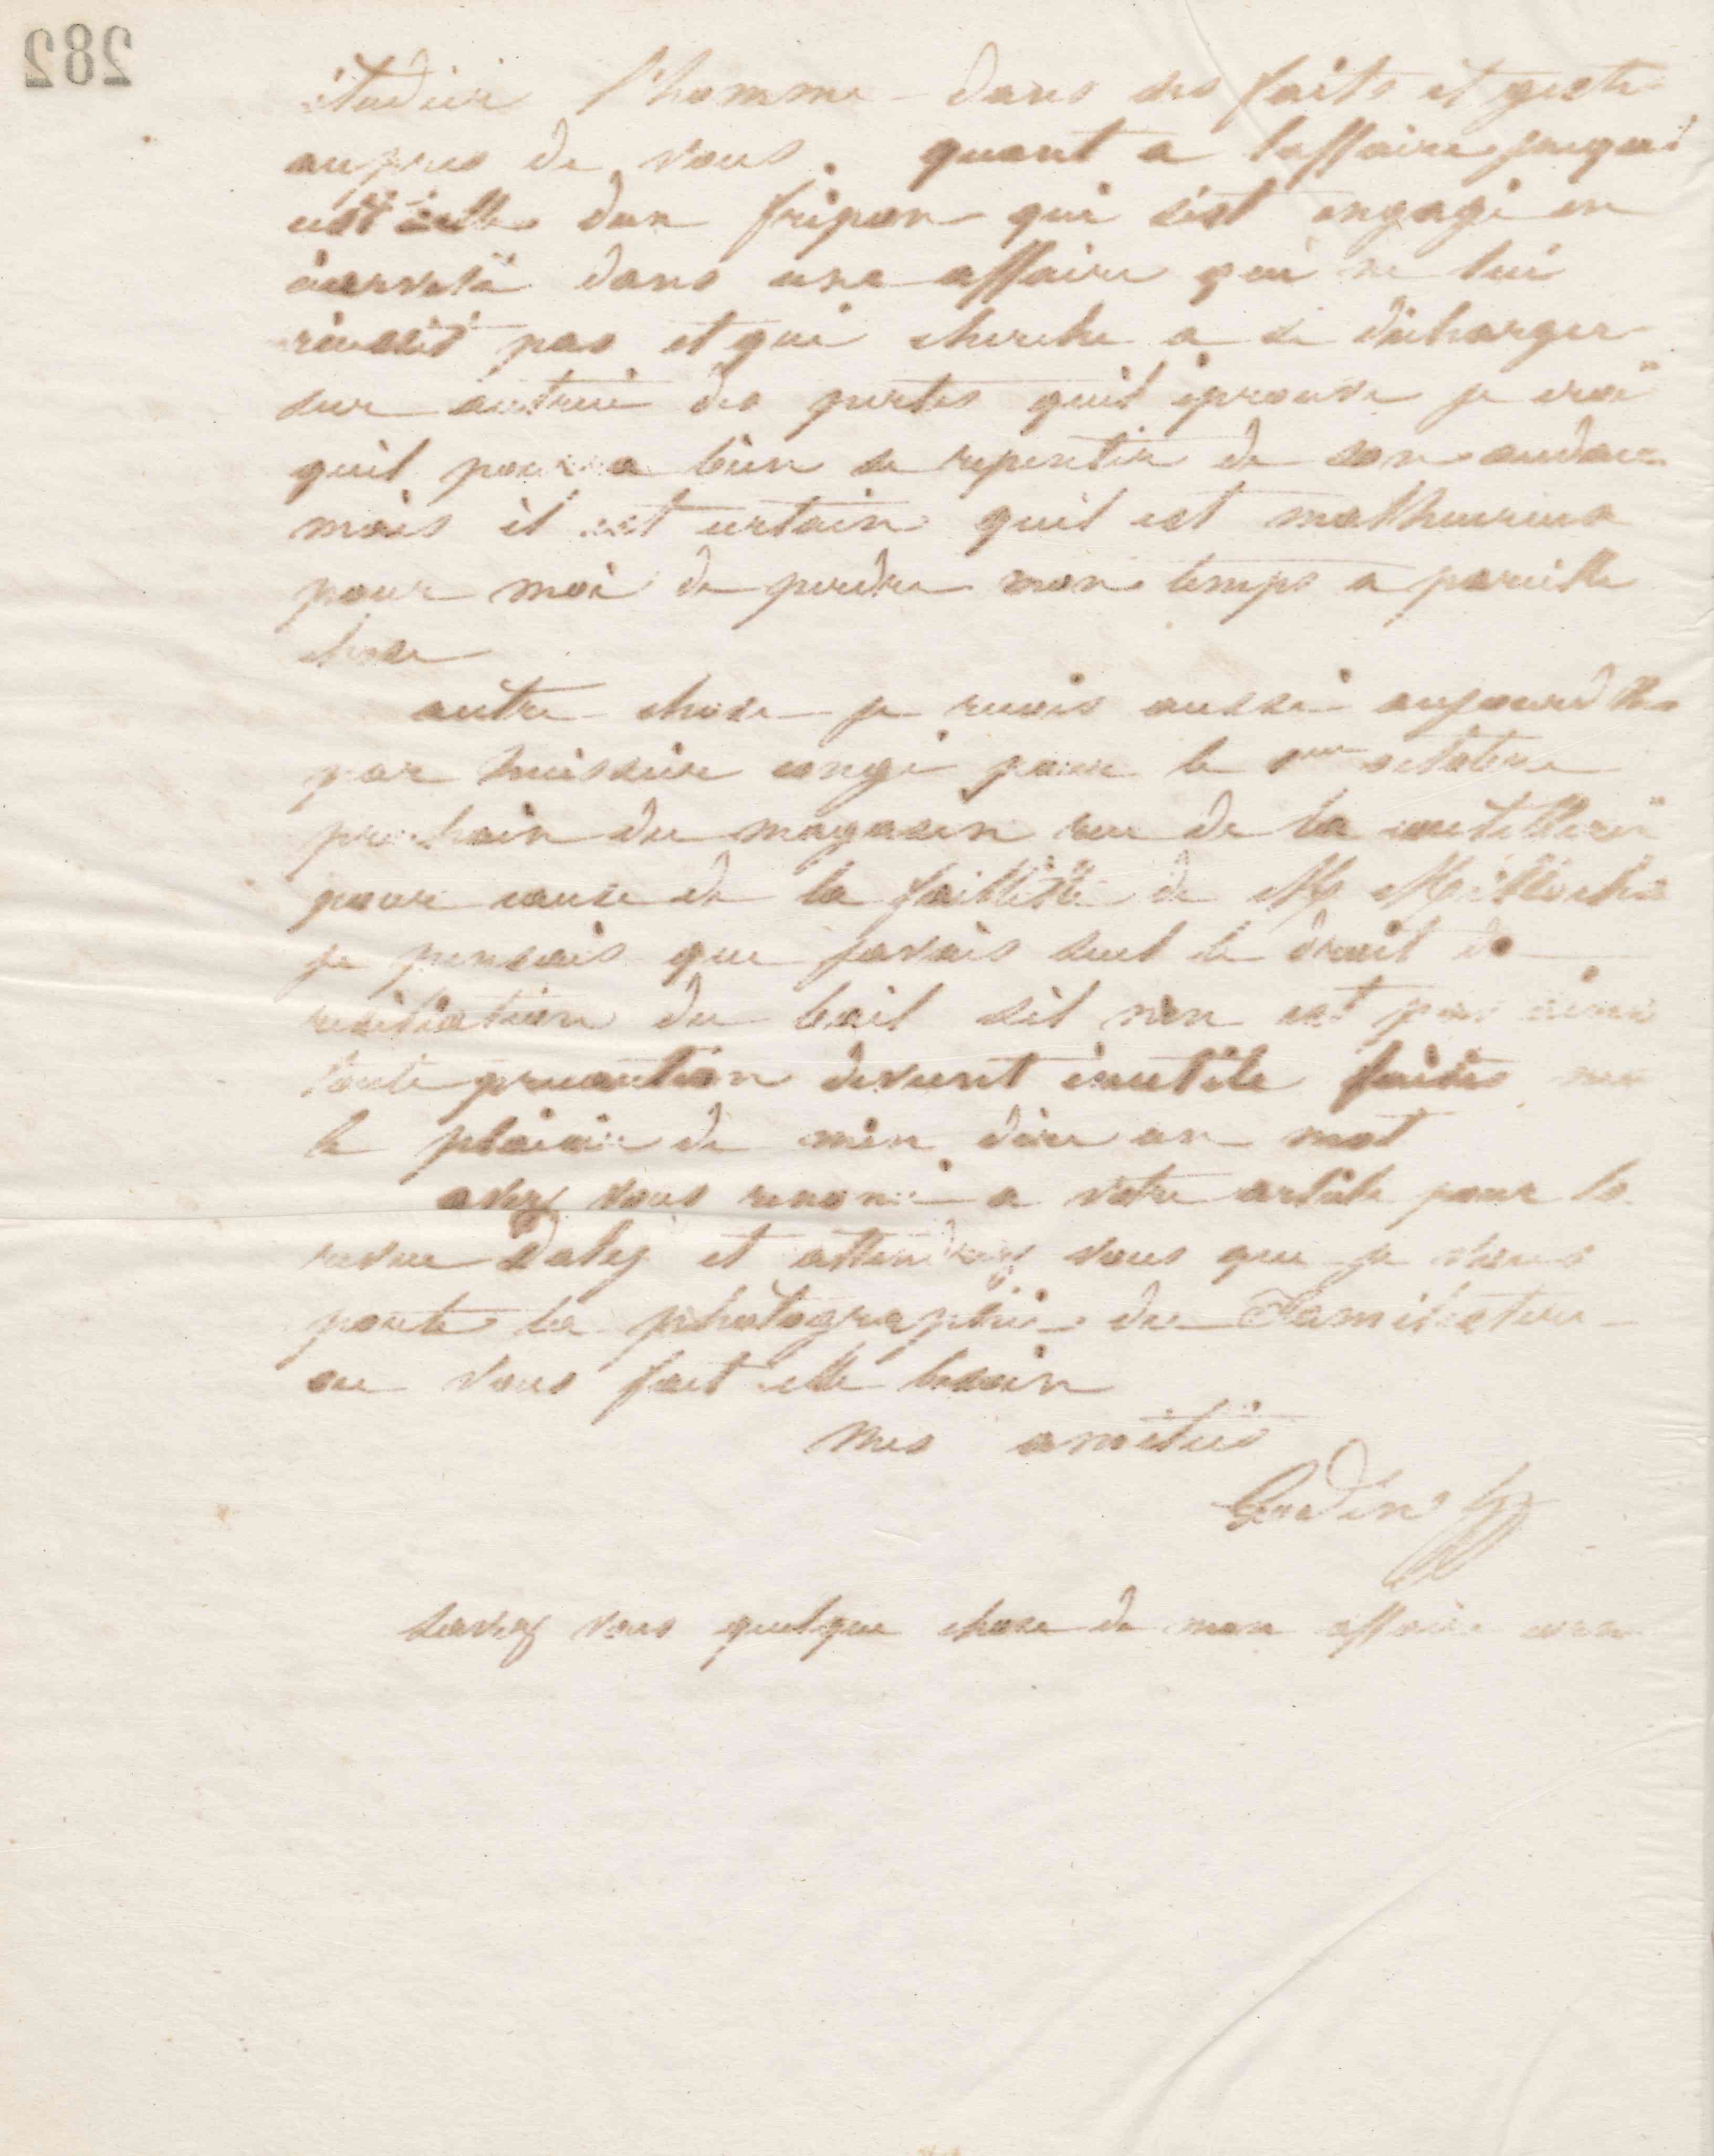 282
étudier l'homme dans ses faits et geste
aupres de vous. quant a laffaire jacquet
cest celle dun fripon qui sest engagé en
écervelé dans une affaire qui ne lui
réussit pas et qui cherche a se décharger
sur autrui des pertes quil éprouve je croi
quil pourra bien se repentir de son audace
mais il est certain quil est malheureux
pour moi de perdre mon temps a pareille
chose
autre chose je recois aussi aujourdhui
par huissier congé pour le 1er octobre
prochain du magasin rue de la coutellerie
pour cause de la faillite de M
je pensais que javais seul le droit de
résiliation du bail sil nen est pas ainsi
toute precaution devient inutile faites moi
le plaisir de men dire un mot
avez vous renoncé a votre article pour la
revue Daly et attendez vous que je vous
porte la photographie du Familistere
ou vous fait elle besoin
mes amitiés
Godin
savez vous quelque chose de mon affaire